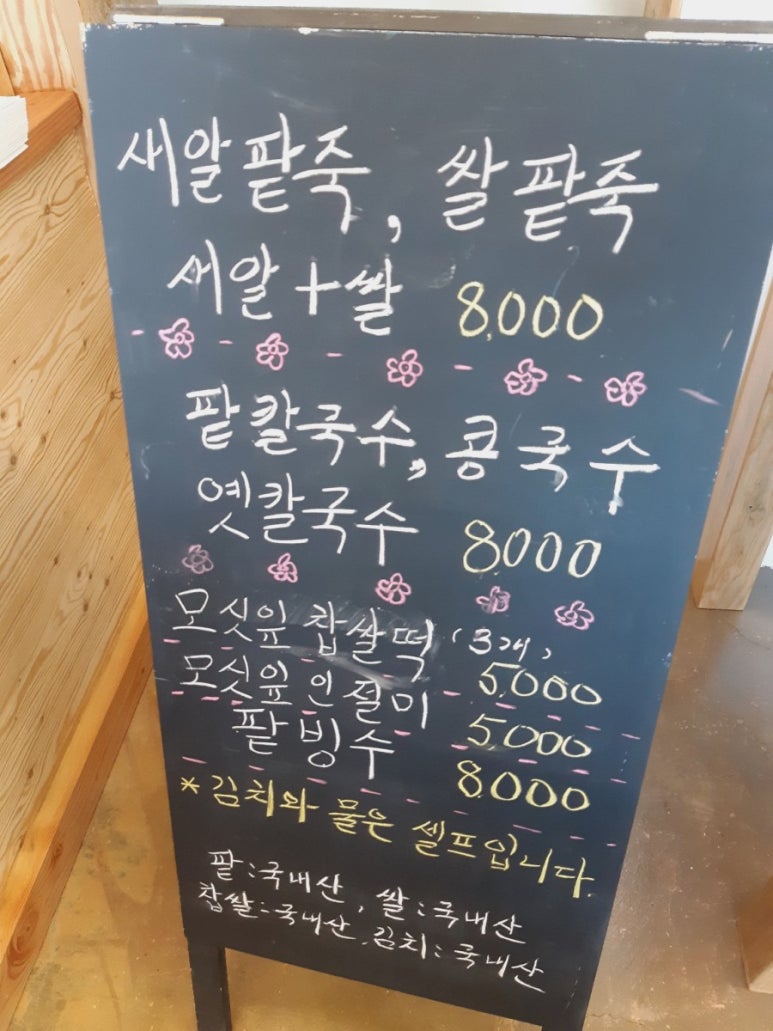 새알팥죽, 쌀팥죽
새알+쌀 8,000
팥칼국수, 콩국수
옛칼국수 8000
모싯잎 찹쌀떡 (3개)
5,000
모싯잎 인절미 5,000
팥빙수 8000
*김치와 물은 셀프입니다.
팥:국내산, 쌀:국내산
찹쌀:국내산, 김치:국내산